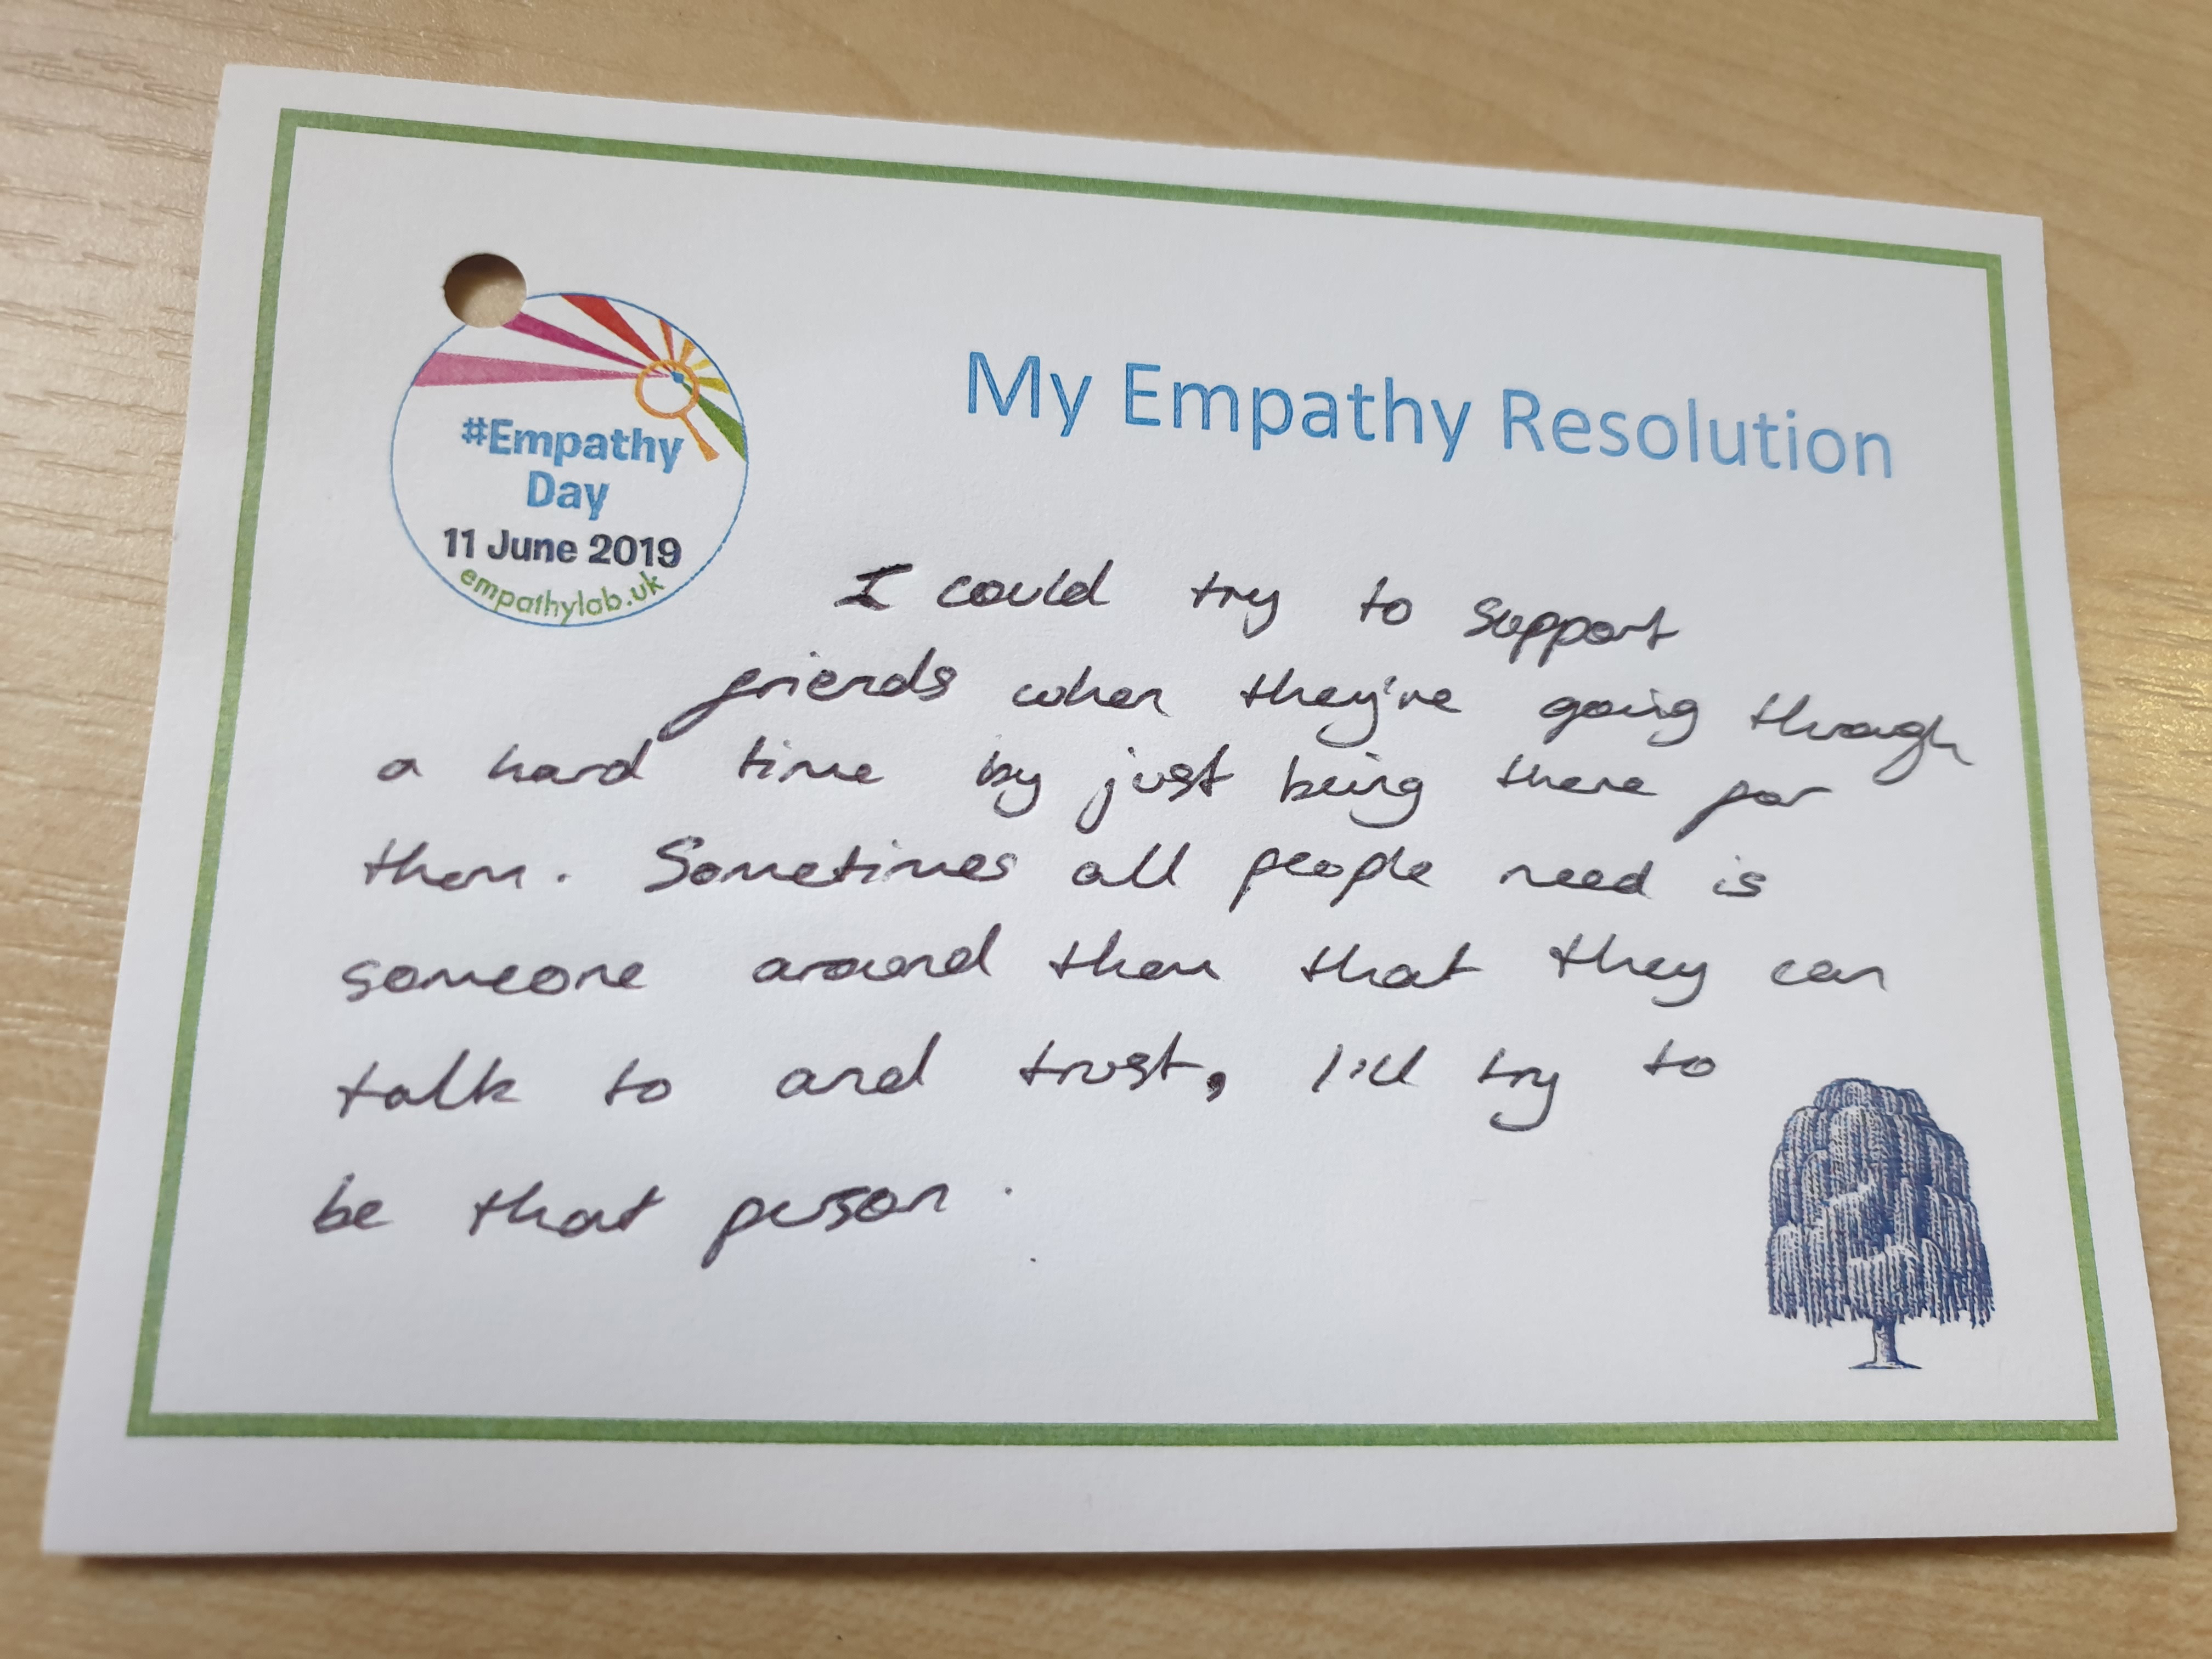 #Empathy
Day
11 June 2019
empathylab.uk
My Empathy Resolution
I could try to support
friends when they're going through
a hard time by just being there for
them. Sometimes all people need is
someone around them that they can
talk to and trust, I'll try to
be that person.